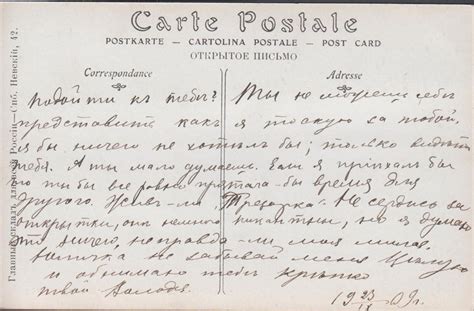 Carte Postale
POSTKARTE – CARTOLINA POSTALE – POST CARD
ОТКРЫТОЕ ПИСЬМО
Correspondance
Adresse
Главный складъ для всей Россіи—Спб. Невскій, 42.
Подойти къ тебѣ? Ты не можешь себѣ
представить какъ я тоскую за тобой,
я бы ничего не хотѣлъ бы; только видѣть
тебя. А ты мало думаешь. Если я пріѣхалъ бы
то ты бы все ровно прятала бы время для
другого. Жив ли "Трезорка". Не сердись за
открытки, они немного пикантны, но я думаю
это ничего, неправда ли моя милая.
не забывай меня Цѣлую
и обнимаю тебя крѣпко
твой Володя.
19 23/IX 09 г.